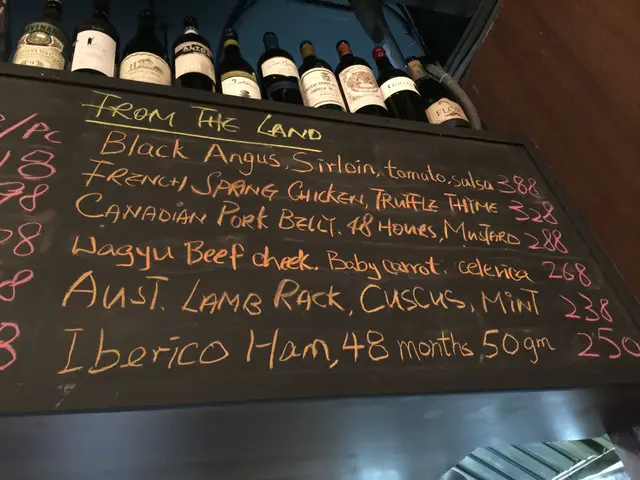 FROM THE LAND
/PC
Black Angus, Sirloin, tomato, salsa 388
FRENCH SPRING CHICKEN, TRUFFLE THYME 328
CANADIAN PORK BELLY. 48 HOURS, MUSTARD 288
Wagyu Beef cheek. Baby carrot. celerica 268
AUST. LAMB RACK, CUSCUS, MINT 238
Iberico Ham, 48 months, 50gm 250